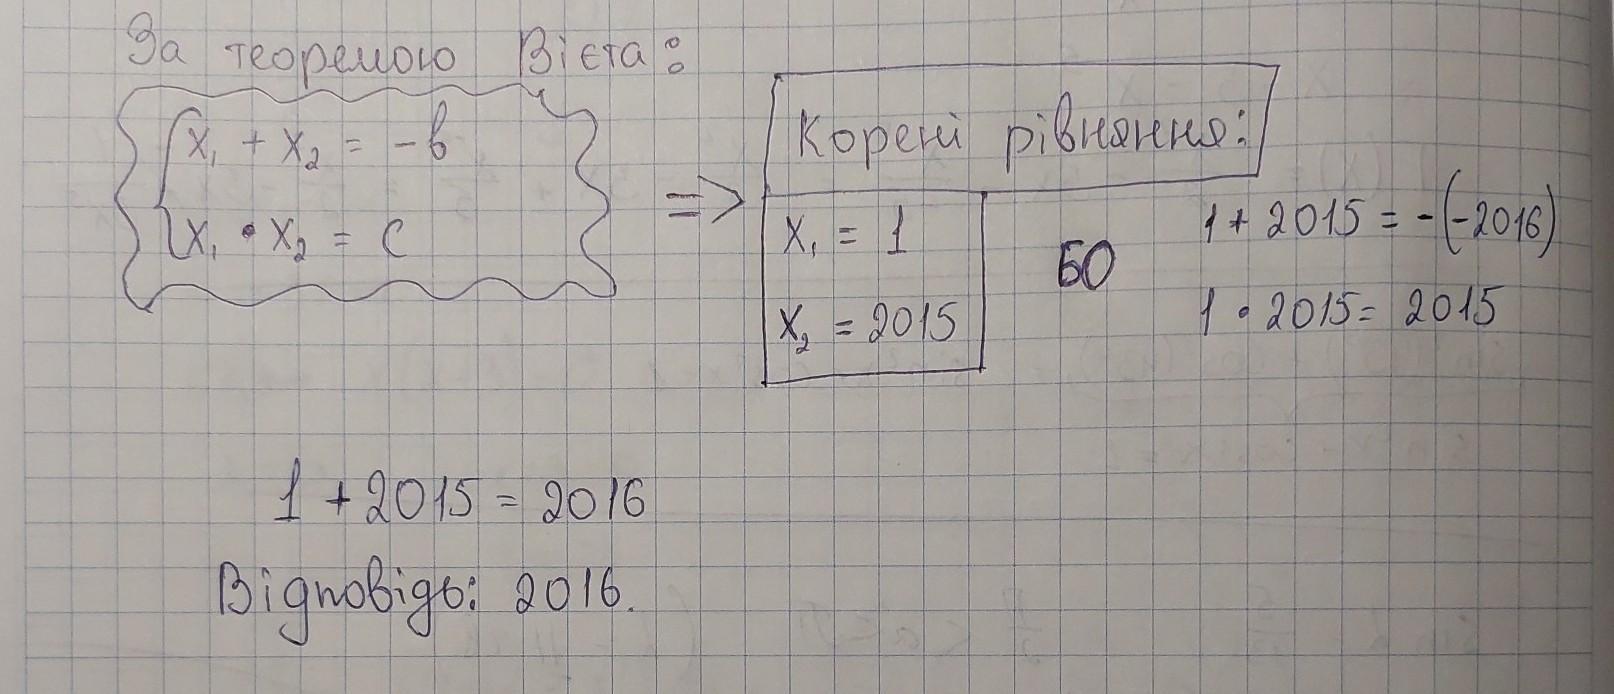 За теоремою Вієта:
x₁ + x₂ = -b
x₁ • x₂ = c
=>
Корені рівняння:
x₁ = 1
x₂ = 2015
БО
1 + 2015 = -(-2016)
1 • 2015 = 2015
1 + 2015 = 2016
Відповідь: 2016.